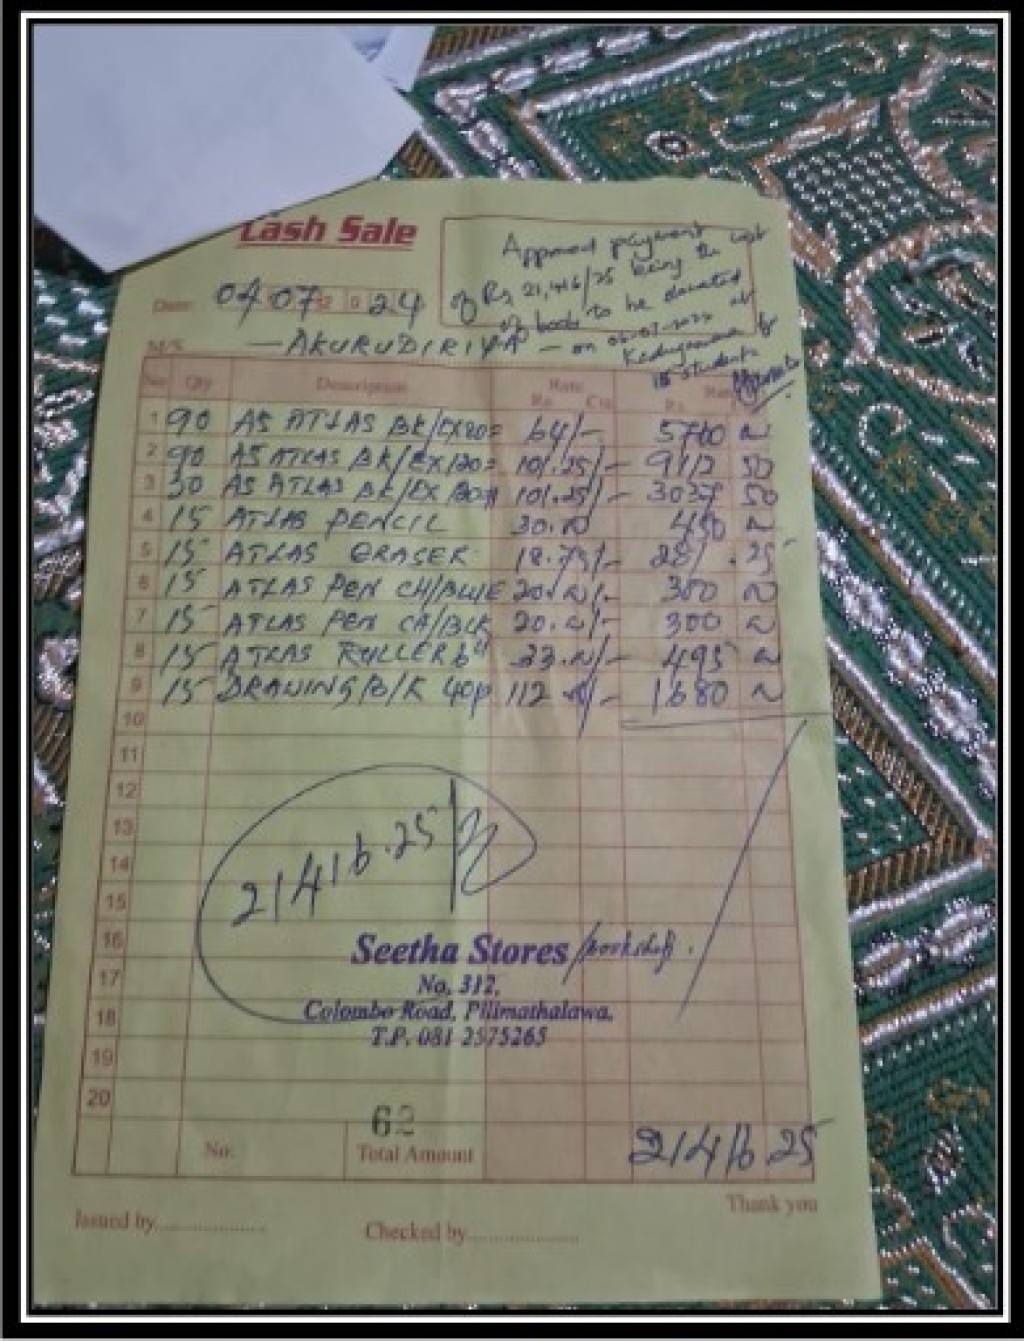 Cash Sale
Approved payment
of Rs 21,416/25 being the cost
of books to be donated
on 06-07-2024 at
Kadugannawa for
15 students
Date: 04 07 2024
M/S. — AKURUDIRIYA —
No Qty Description Rate Rs. Cts. Rs.
1 90 A5 ATLAS BK/EX80= 64/- 5760 ~
2 90 A5 ATLAS BK/EX120= 101.25/- 9112 50
3 30 A5 ATLAS BK/EX 101.25/- 3037 50
4 15 ATLAS PENCIL 30.~ 450 ~
5 15 ATLAS ERASER 18.75/- 281 .25
6 15 ATLAS PEN CH/BLUE 20.~/- 300 ~
7 15 ATLAS PEN CH/BLK 20.~/- 300 ~
8 15 ATLAS RULLER 6" 33.~/- 495 ~
9 15 DRAWING B/K 40p 112 ~/- 1680 ~
10
11
12
13
21416.25
14
15
16
Seetha Stores /bookshop.
No. 312,
17
Colombo Road, Pilimathalawa.
18
T.P. 081 2575265
19
20
62
No: Total Amount 21416 25
Thank you
Issued by....................
Checked by....................